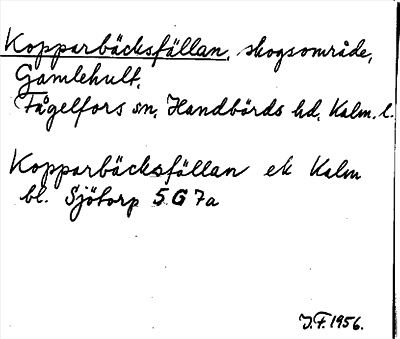 Kopparbäcksfällan, skogsområde,
Gamlehult,
Fågelfors sn, Handbörds hd, Kalm. l.
Kopparbäcksfällan ek Kalm
bl. Sjötorp 5 G 7a
J.F. 1956.